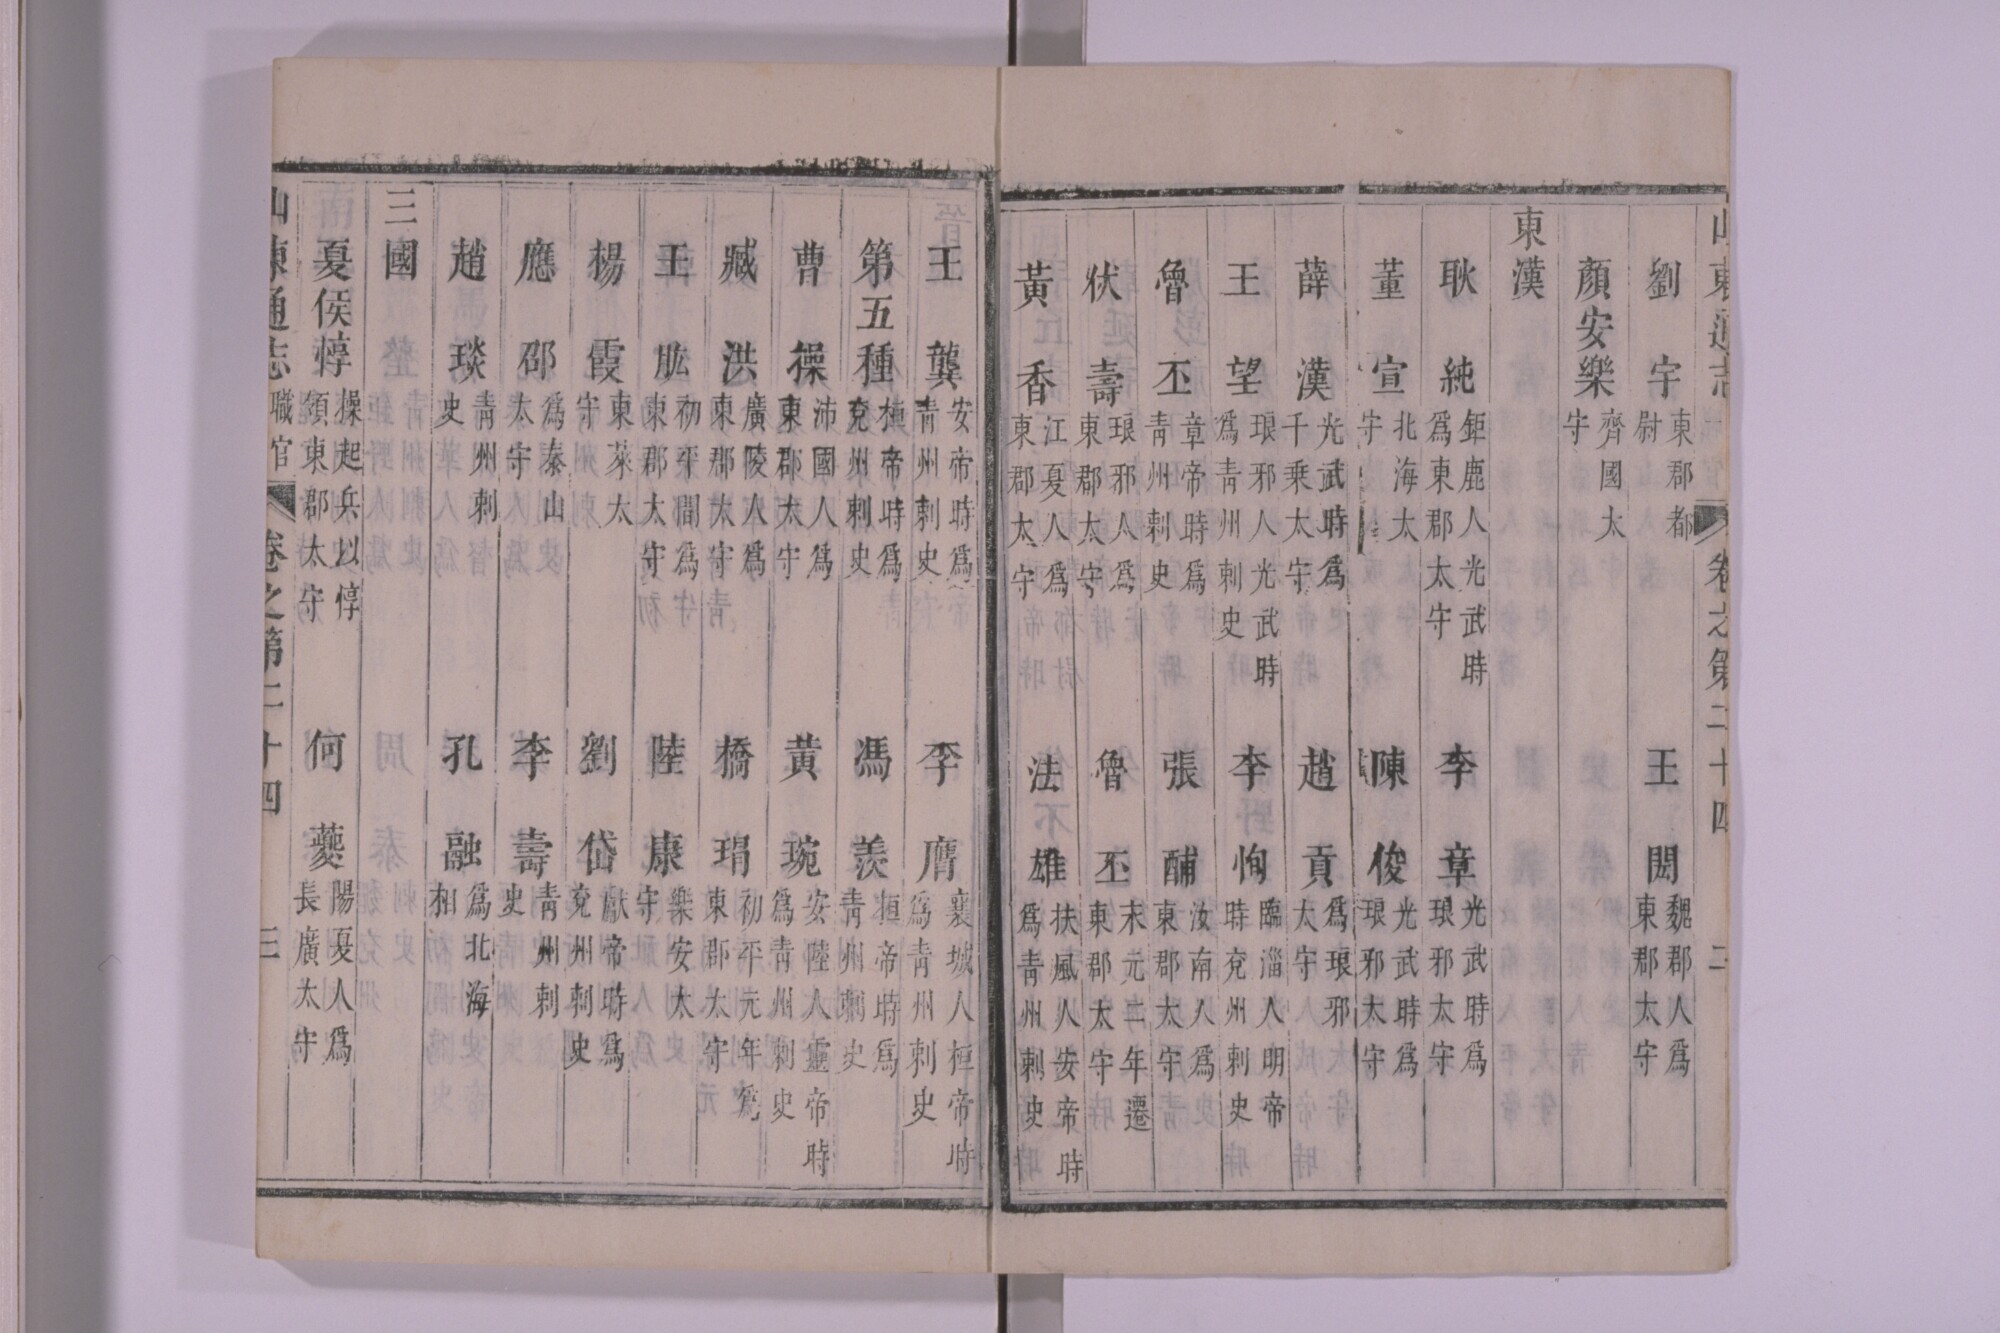 山東通志 卷之第二十四 二
劉宇 東郡都尉 王閎 魏郡人爲東郡太守
顏安樂 齊國太守
東漢
耿純 鉅鹿人光武時爲東郡太守 李章 光武時爲琅邪太守
董宣 北海太守 陳俊 光武時爲琅邪太守
薛漢 光武時爲千乗太守 趙貢 爲琅邪太守
王望 琅邪人光武時爲青州刺史 李恂 臨淄人明帝時兖州刺史
魯丕 章帝時爲青州刺史 張酺 汝南人爲東郡太守
伏壽 琅邪人爲東郡太守 魯丕 末元二年遷東郡太守
黃香 江夏人爲東郡太守 法雄 扶風人安帝時爲青州刺史
王龔 安帝時爲青州刺史 李膺 襄城人桓帝時爲青州刺史
第五種 桓帝時爲兖州刺史 馮羨 桓帝時爲青州刺史
曹操 沛國人爲東郡太守 黃琬 安陸人靈帝時爲青州刺史
臧洪 廣陵人爲東郡太守 橋瑁 初平元年爲東郡太守
王肱 初平間爲東郡太守 陸康 樂安太守
楊霞 東萊太守 劉岱 獻帝時爲兖州刺史
應邵 爲泰山太守 李壽 青州刺史
趙琰 青州刺史 孔融 爲北海相
三國
夏侯惇 操起兵以惇領東郡太守 何夔 陽夏人爲長廣太守
山東通志 職官 卷之第二十四 三